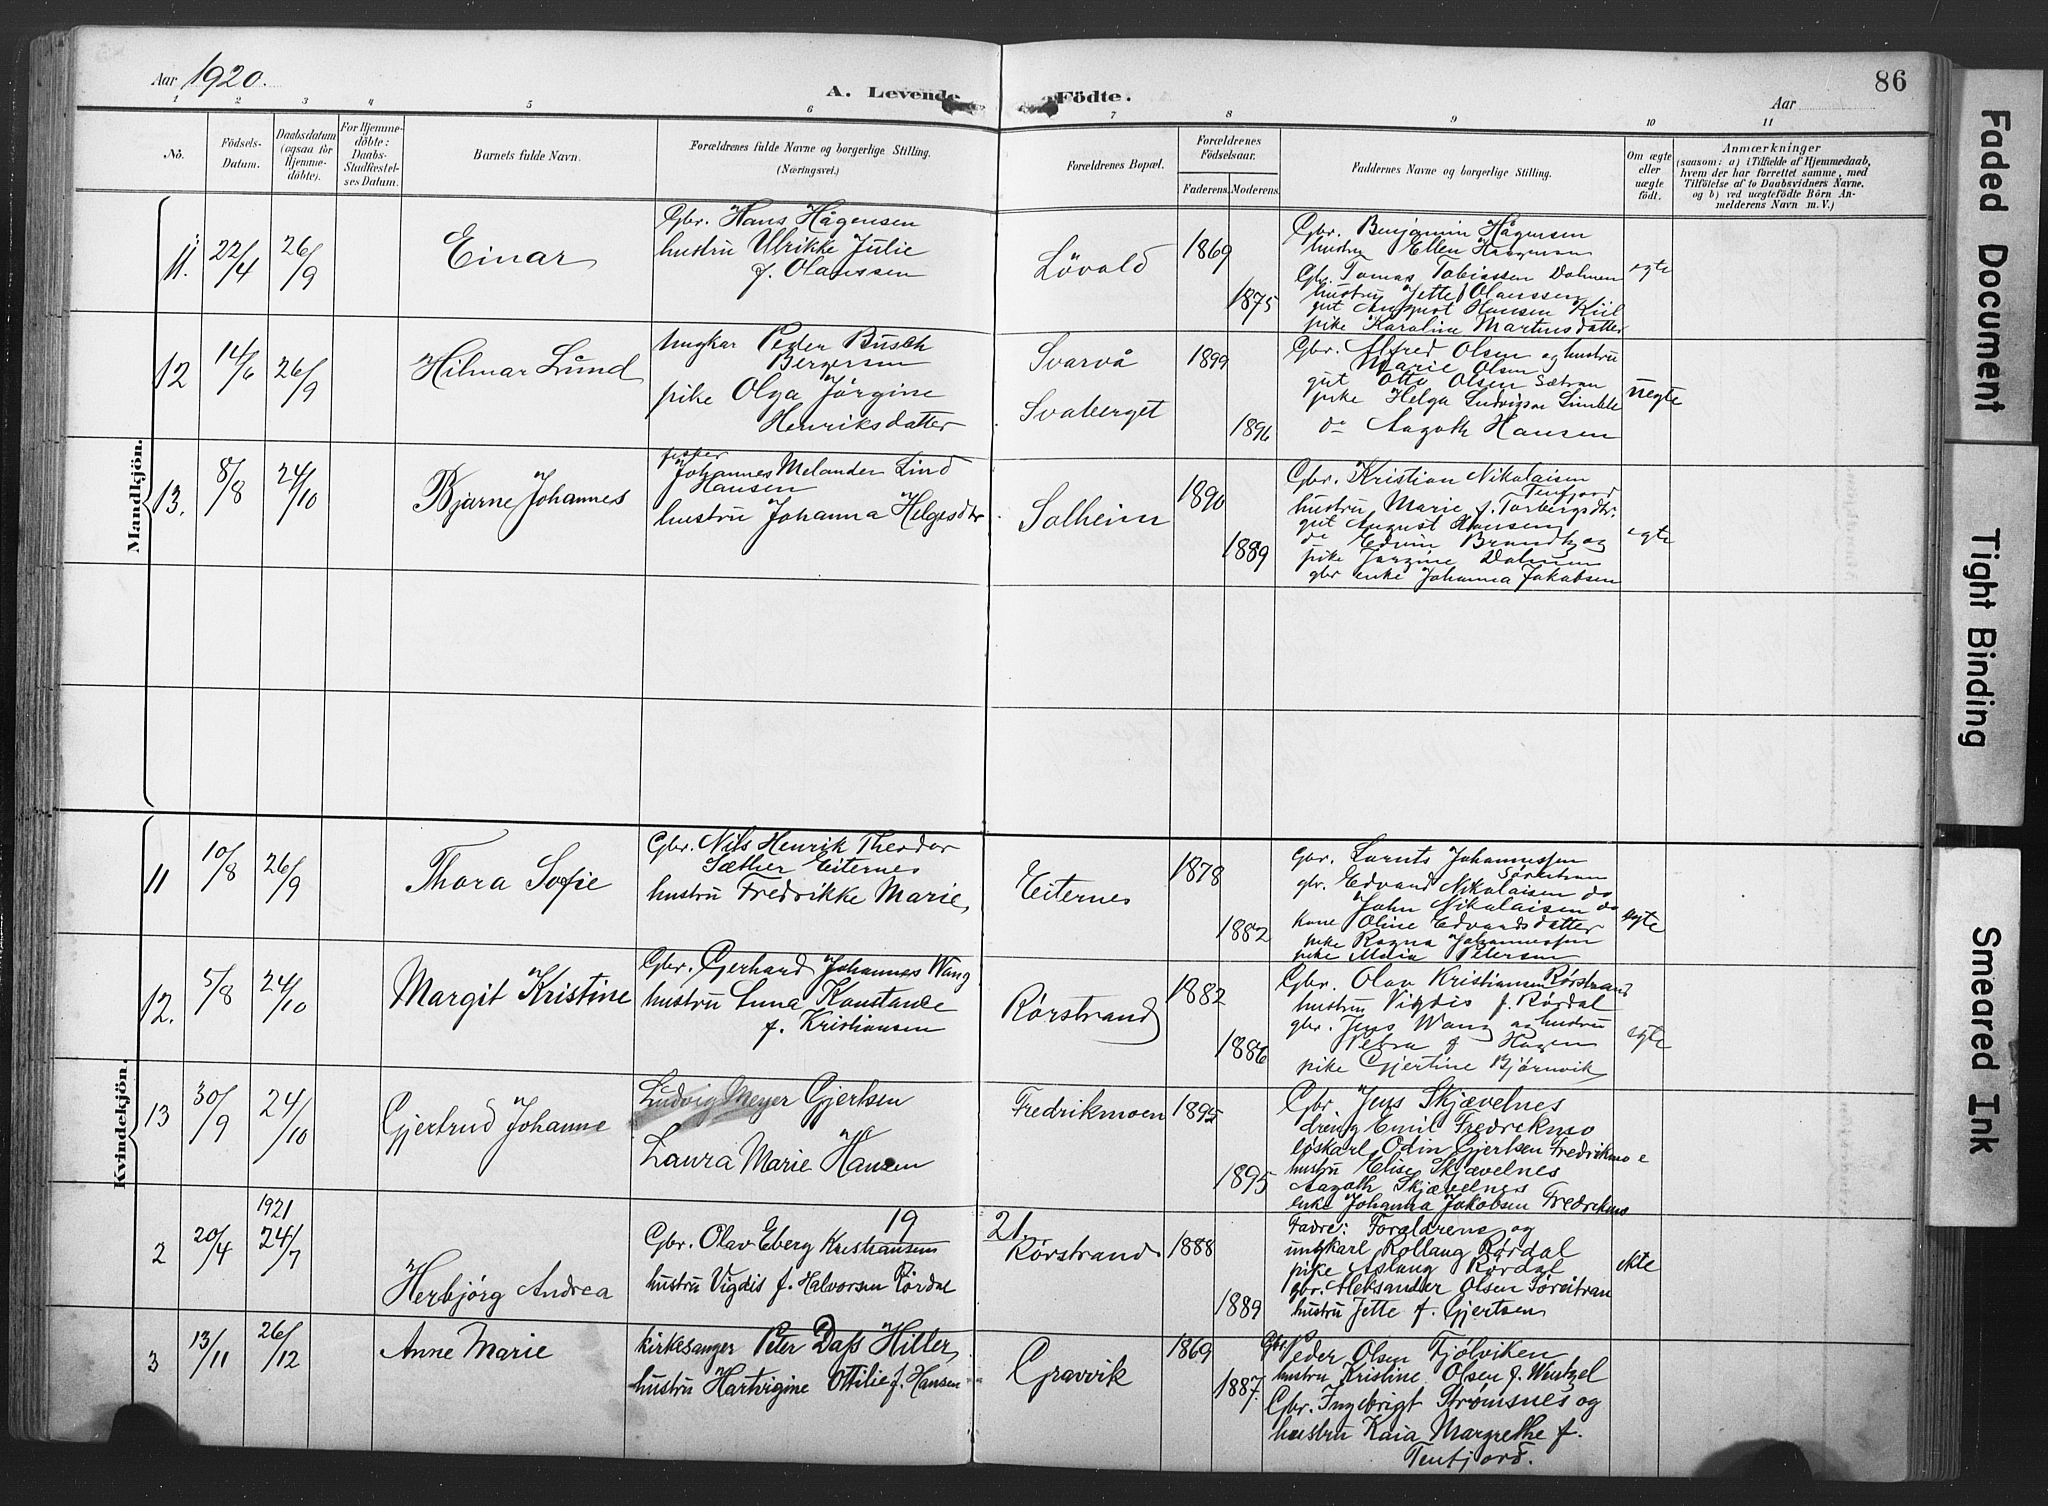 Aar 1920.
A. Levende Födte.
Aar
86
1 2 3 4 5 6 7 8 9 10 11
No.
Födsels-Datum.
Daabsdatum (ogsaa for Hjemme-döbte).
For Hjemme-döbte: Daabs-Stadfæstel-ses Datum.
Barnets fulde Navn.
Forældrenes fulde Navne og borgerlige Stilling.
(Næringsvei.)
Forældrenes Bopæl.
Forældrenes Födselsaar.
Faderens. Moderens.
Faddernes Navne og borgerlige Stilling.
Om ægte eller uægte födt.
Anmærkninger
(saasom: a) i Tilfælde af Hjemmedaab, hvem der har forrettet samme, med Tilföielse af to Daabsvidners Navne, og b) ved uægtefödte Börn Anmelderens Navn m. V.)
Mandkjön.
11. 22/4 26/9
Einar
Gbr. Hans Hågensen
hustru Ulrikke Julie
f. Olaussen
Lövold
1869
1875
Gbr. Benjamin Hågensen
hustru Ellen Haagensen
Gbr. Tomas Tobiassen Dolmen
hustru Jette Olaussen
gut August Hansen Kiil
pike Karoline Martinsdatter
egte
12 14/6 26/9
Hilmar Lund
Ungkar Peder Busch
Bergersen
pike Olga Jørgine
Henriksdatter
Svarvå
Svaberget
1899
1896
Gbr. Alfred Olsen og hustru
Marie Olsen
gut Otto Olsen Sætran
pike Helga Ludvigsen
do Aagoth Hansen
uegte
13. 8/8 24/10
Bjarne Johannes
fisker
Johannes Melander Lind
Hansen
hustru Johanna Helgesdtr
Solheim
1890
1889
Gbr. Kristian Nikolaisen
Tenfjord
hustru Marie f. Torbergsdtr.
gut August Hansen
do Edvin
pike Jørgine Dolmen
gbr enke Johanna Jakobsen
egte
Kvindekjön.
11 10/8 26/9
Thora Sofie
Gbr. Nils Henrik Theodor
Sæther Eiternes
hustru Fredrikke Marie
Eiternes
1878
1882
gbr. Lornts Johannessen
gbr. Edvard Nikolaisen do
John Nikolaisen do
kone Oline Edvardsdatter
pike Ragna Johannessen
pike Petersen
egte
12. 5/8 24/10
Margit Kristine
Gbr. Gerhard Johannes Wang
hustru Anna Konstance
f. Kristiansen
Rørstrand
1882
1886
Gbr. Olav Kristiansen Rørstrand
hustru Vigdis f. Rørdal
gbr. Jens Wang og hustru
Petra f Hagen
pike Gjertine Bjørnvik
egte
13 30/9 24/10
Gjertrud Johanne
Ludvig Meyer Gjertsen
Laura Marie Hansen
Fredrikmoen
1895
1895
Gbr Jens Skjævelnes
dreng Emil Fredrikmo
løskarl Odin Gjertsen Fredrikmoe
hustru Elise Skjævelnes
Aagoth Skjævelnes
enke Johanna Jakobsen Fredrikmo
1921
19 21.
2 20/4 24/7
Herbjörg Andrea
Gbr. Olav Eberg Kristiansen
hustru Vigdis f. Halvorsen Rördal
Rörstrand
1888
1889
Fadre: Forældrene og
ungkarl Rollaug Rørdal
pike Aslaug Rørdal
gbr. Aleksander Olsen Søreitran
hustru Jette f. Gjertsen
ekte
3 13/11 26/12
Anne Marie
kirkesanger Peter Dass Hiller
hustru Hartvigine Ottilie f. Hansen
Gravvik
1869
1887.
Gbr. Peder Olsen Fjølviken
hustru Kristine Olsen f. Wentzel
Gbr. Ingebrigt Strømsnes og
hustru Kaia Margrethe f.
Tenfjord.
Faded Document
Tight Binding
Smeared Ink